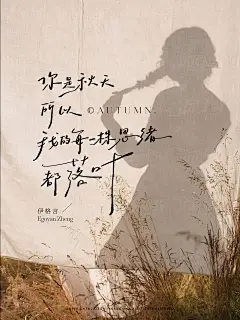 你是秋天
所以 ©AUTUMN.
我的每一株思绪
都落叶
伊格言
Egoyan Zheng